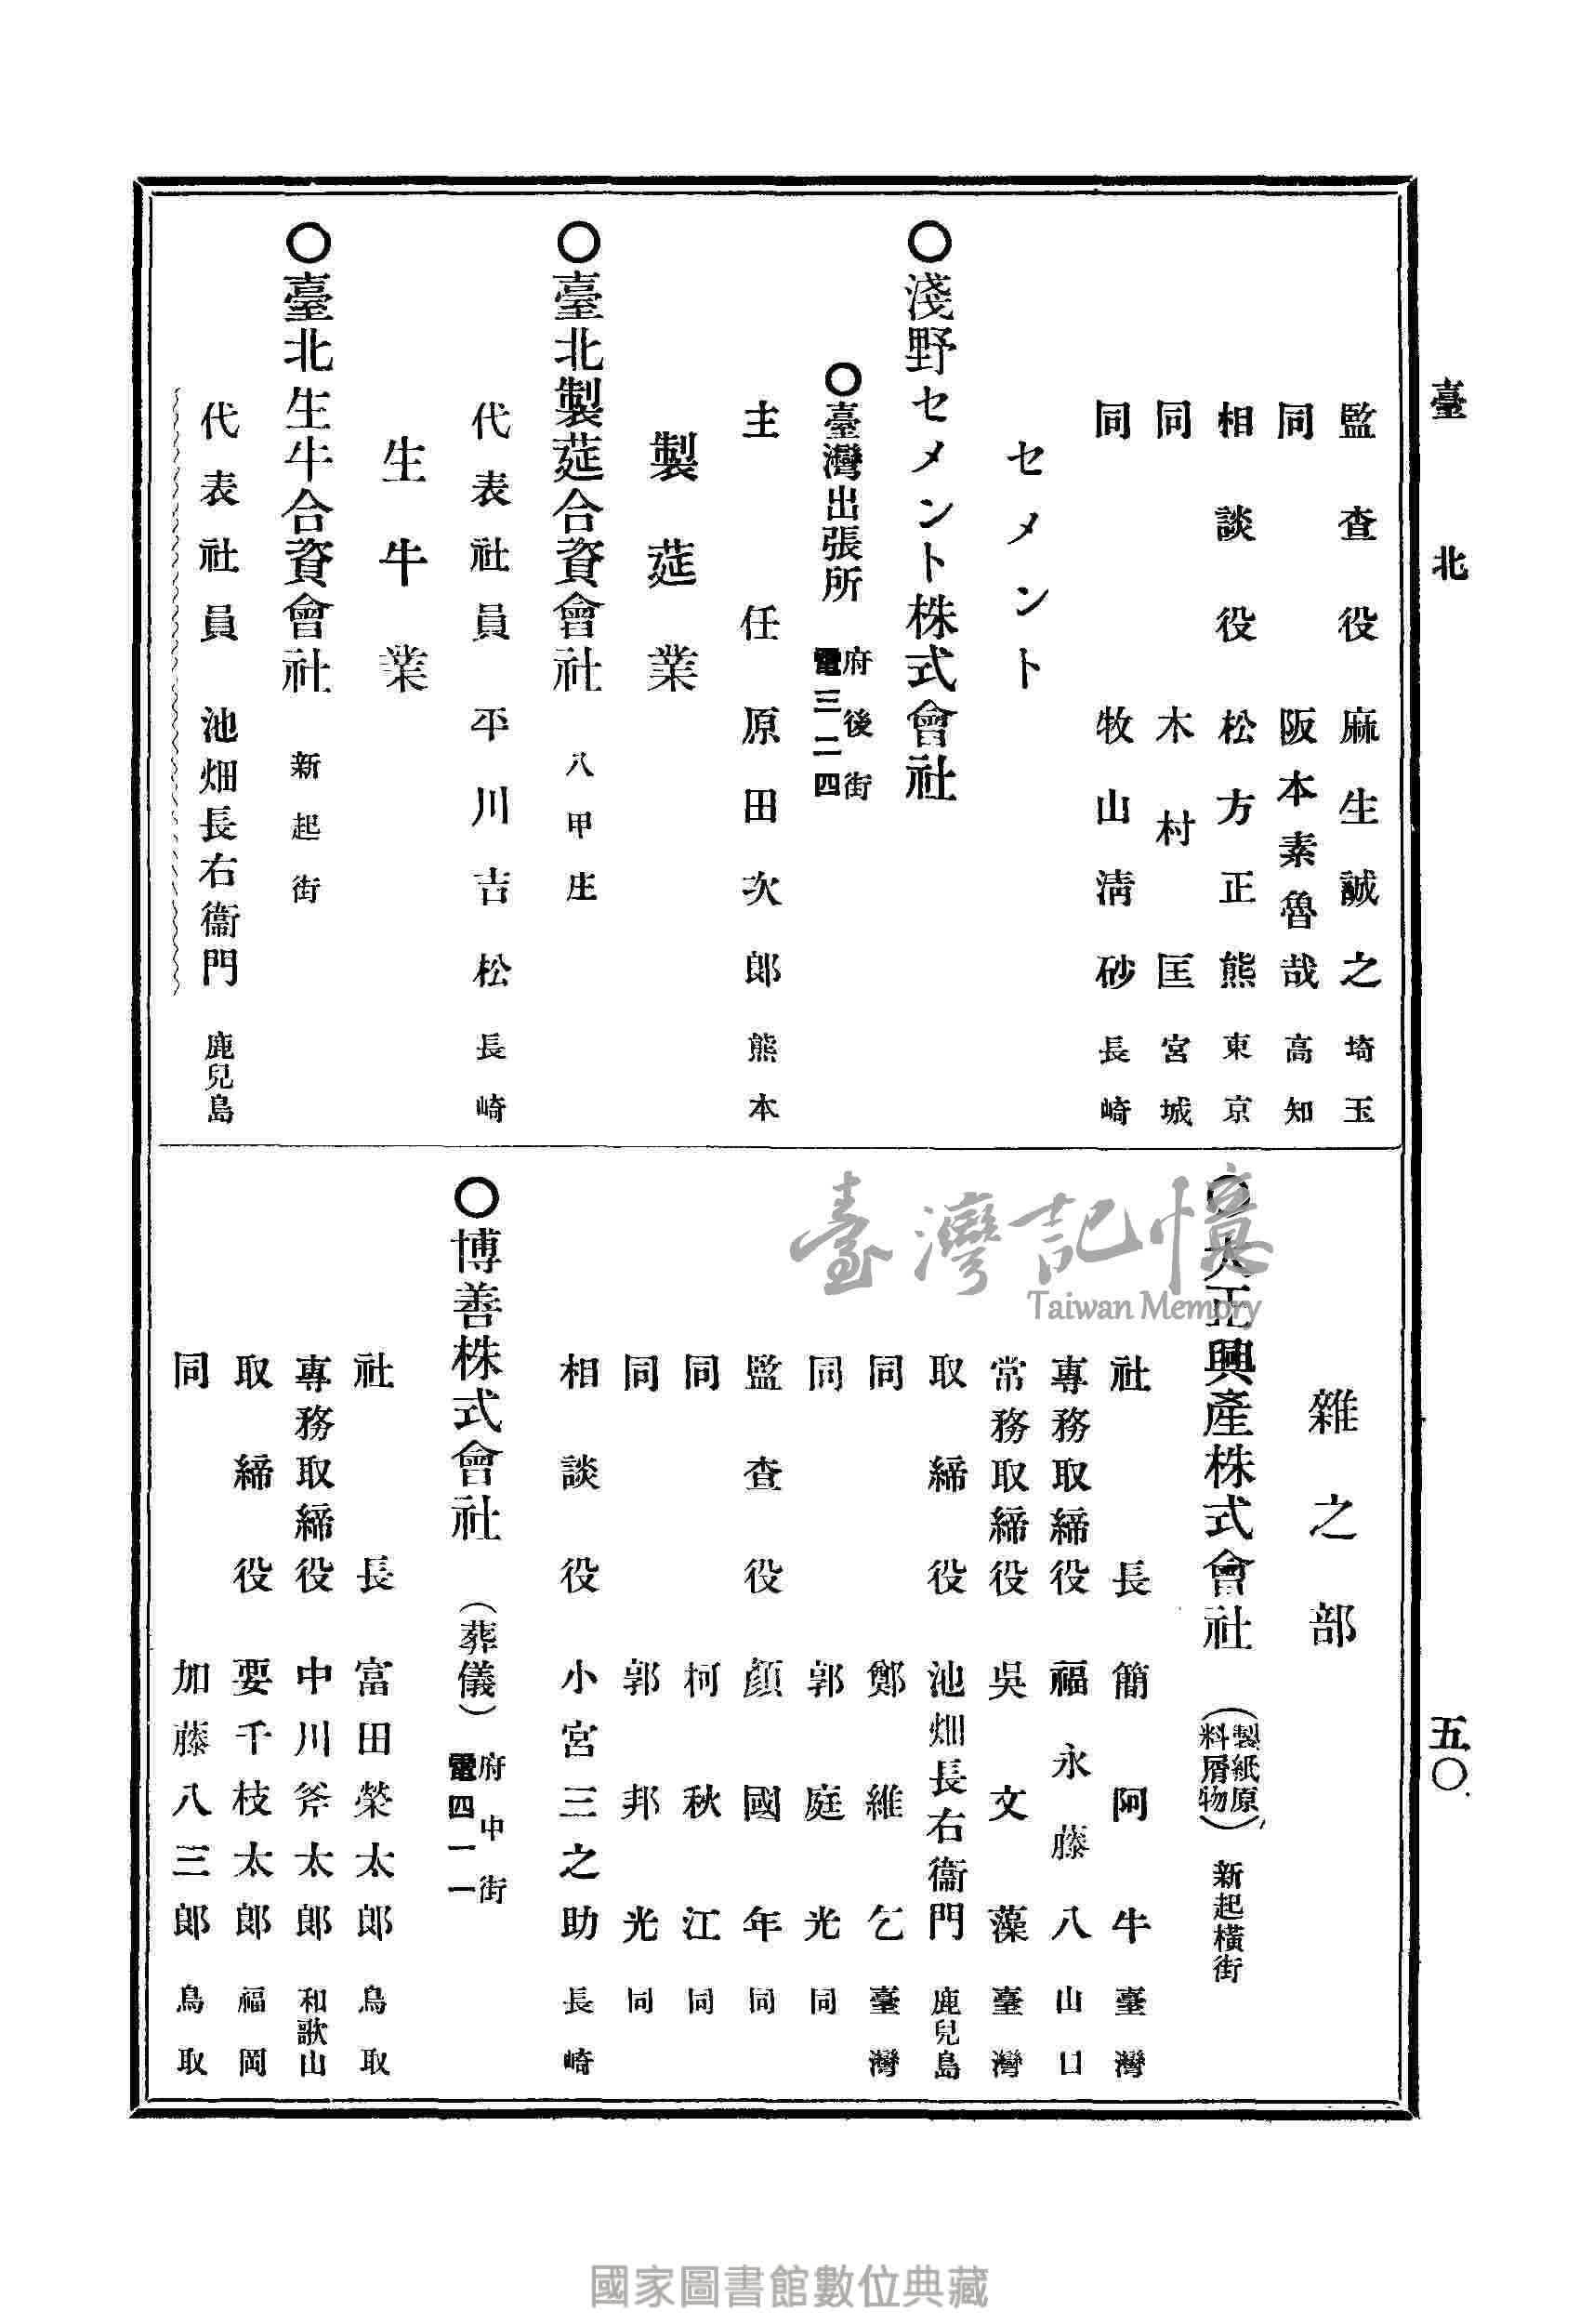 臺北
五〇
監查役 麻生誠之 埼玉
同 阪本素魯哉 高知
相談役 松方正熊 東京
同 木村匡 宮城
同 牧山淸砂 長崎
セメント
〇淺野セメント株式會社
〇臺灣出張所 府後街 電三二四
主任 原田次郎 熊本
製莚業
〇臺北製莚合資會社 八甲庄
代表社員 平川吉松 長崎
生牛業
〇臺北生牛合資會社 新起街
代表社員 池畑長右衞門 鹿兒島
雜之部
〇大正興產株式會社 (製紙原料屑物) 新起橫街
社長 簡阿牛 臺灣
專務取締役 福永藤八 山口
常務取締役 吳文藻 臺灣
取締役 池畑長右衞門 鹿兒島
同 鄭維乞 臺灣
同 郭庭光 同
監查役 顏國年 同
同 柯秋江 同
同 郭邦光 同
相談役 小宮三之助 長崎
〇博善株式會社 (葬儀) 府中街 電四一一
社長 富田榮太郎 鳥取
專務取締役 中川斧太郎 和歌山
取締役 要千枝太郎 福岡
同 加藤八三郎 鳥取
臺灣記憶
Taiwan Memory
國家圖書館數位典藏